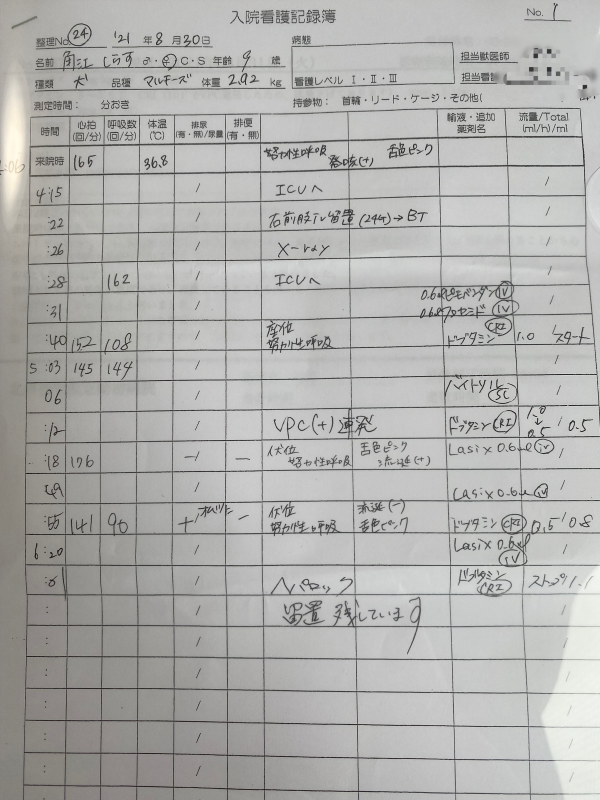 入院看護記録簿
No. 1
整理No. 24 '21 年 8 月 30 日
病態
担当獣医師
名前 角江 しらす ♂・♀ C・S 年齢 9 歳
担当看護
種類 犬 品種 マルチーズ 体重 2.92 kg
看護レベル Ⅰ・Ⅱ・Ⅲ
測定時間: 分おき 持参物: 首輪・リード・ケージ・その他(
時間 心拍(回/分) 呼吸数(回/分) 体温(℃) 排尿(有・無)/尿量 排便(有・無) 輸液・追加薬剤名 流量/Total(ml/h)/ml
来院時 165 36.8 努力性呼吸 発咳(+) 舌色ピンク /
4:15 / ICUへ /
:22 / 右前肢 留置 (24G)→BT /
:26 / X-ray /
:28 162 / ICUへ /
:31 / 0.6mlピモベンダン IV 0.6mlフロセミド IV /
:40 152 108 / 座位 努力性呼吸 ドブタミン CRI 1.0 / スタート
5:03 145 144 / /
06 / バイトリル SC /
:12 / VPC(+)連発 ドブタミン CRI 1.0↓0.5 / 0.5
:18 176 -/ - 伏位 努力性呼吸 舌色ピンク 流涎(+) Lasix 0.6ml IV /
49 / Lasix 0.6ml IV /
:55 141 96 +/ - 伏位 努力性呼吸 流涎(-) 舌色ピンク ドブタミン CRI 0.5 / 0.8
6:20 / Lasix 0.6ml IV /
/ ヘパロック ドブタミン CRI ストップ / 1.1
: / 留置 残しています /
: / /
: / /
: / /
: / /
: / /
: / /